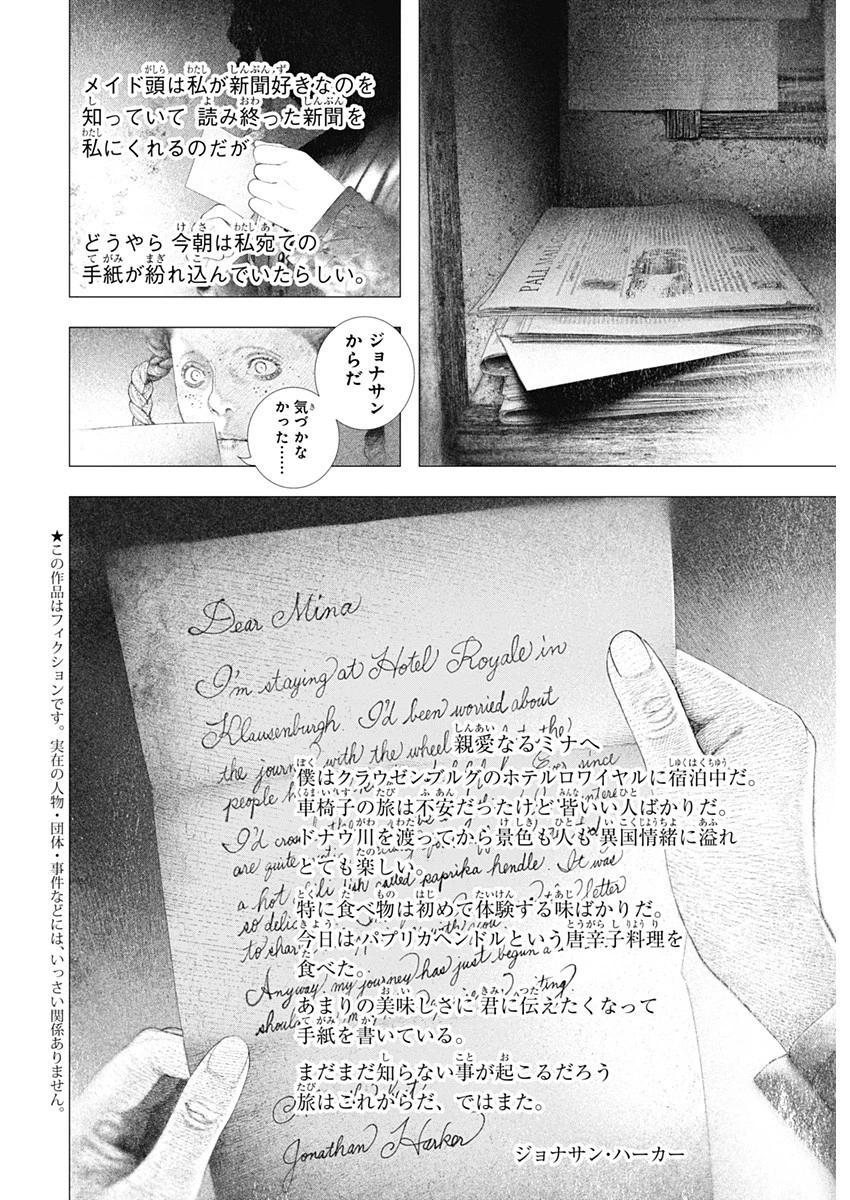 PALL MALL G
メイド頭は私が新聞好きなのを
知っていて 読み終った新聞を
私にくれるのだが
どうやら 今朝は私宛ての
手紙が紛れ込んでいたらしい。
ジョナサン
からだ
気づかな
かった……
Dear Mina
I'm staying at Hotel Royale in
Klausenburgh. I'd been worried about
the journ with the wheel the
people h since
I'd cro
are quite
a hot dish called paprika hendle. It was
so deli letter
to shar with you
Anyway my journey has just begun a
shou writing
Jonathan Harker
親愛なるミナへ
僕はクラウゼンブルグのホテルロワイヤルに宿泊中だ。
車椅子の旅は不安だったけど 皆いい人ばかりだ。
ドナウ川を渡ってから景色も人も 異国情緒に溢れ
とても楽しい。
特に食べ物は初めて体験する味ばかりだ。
今日はパプリカヘンドルという唐辛子料理を
食べた。
あまりの美味しさに 君に伝えたくなって
手紙を書いている。
まだまだ知らない事が起こるだろう
旅はこれからだ、ではまた。
ジョナサン・ハーカー
★この作品はフィクションです。実在の人物・団体・事件などには、いっさい関係ありません。